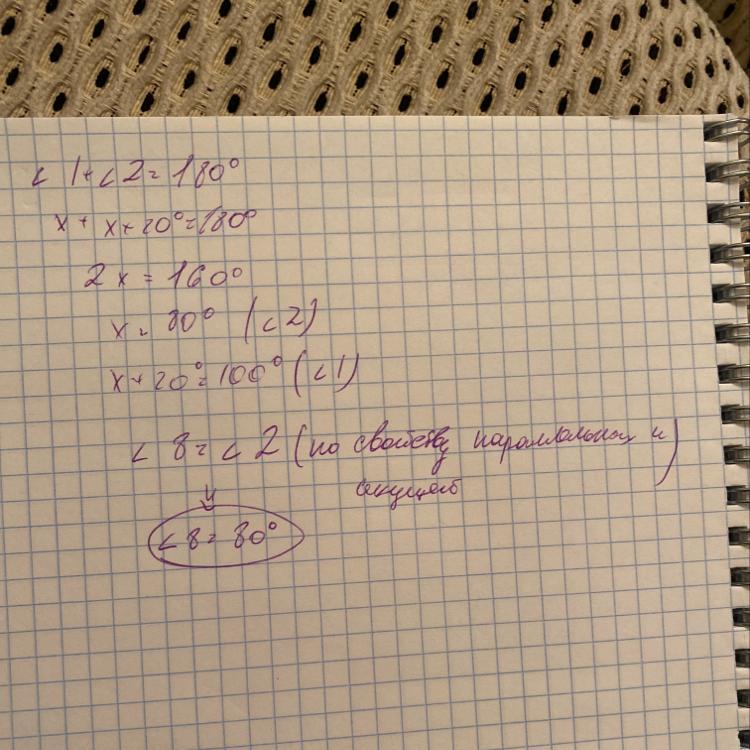 ∠1+∠2=180°
x+x+20°=180°
2x=160°
x=80° (∠2)
x+20°=100° (∠1)
∠8=∠2 (по свойству параллельной и
секущей)
⇓
∠8=80°